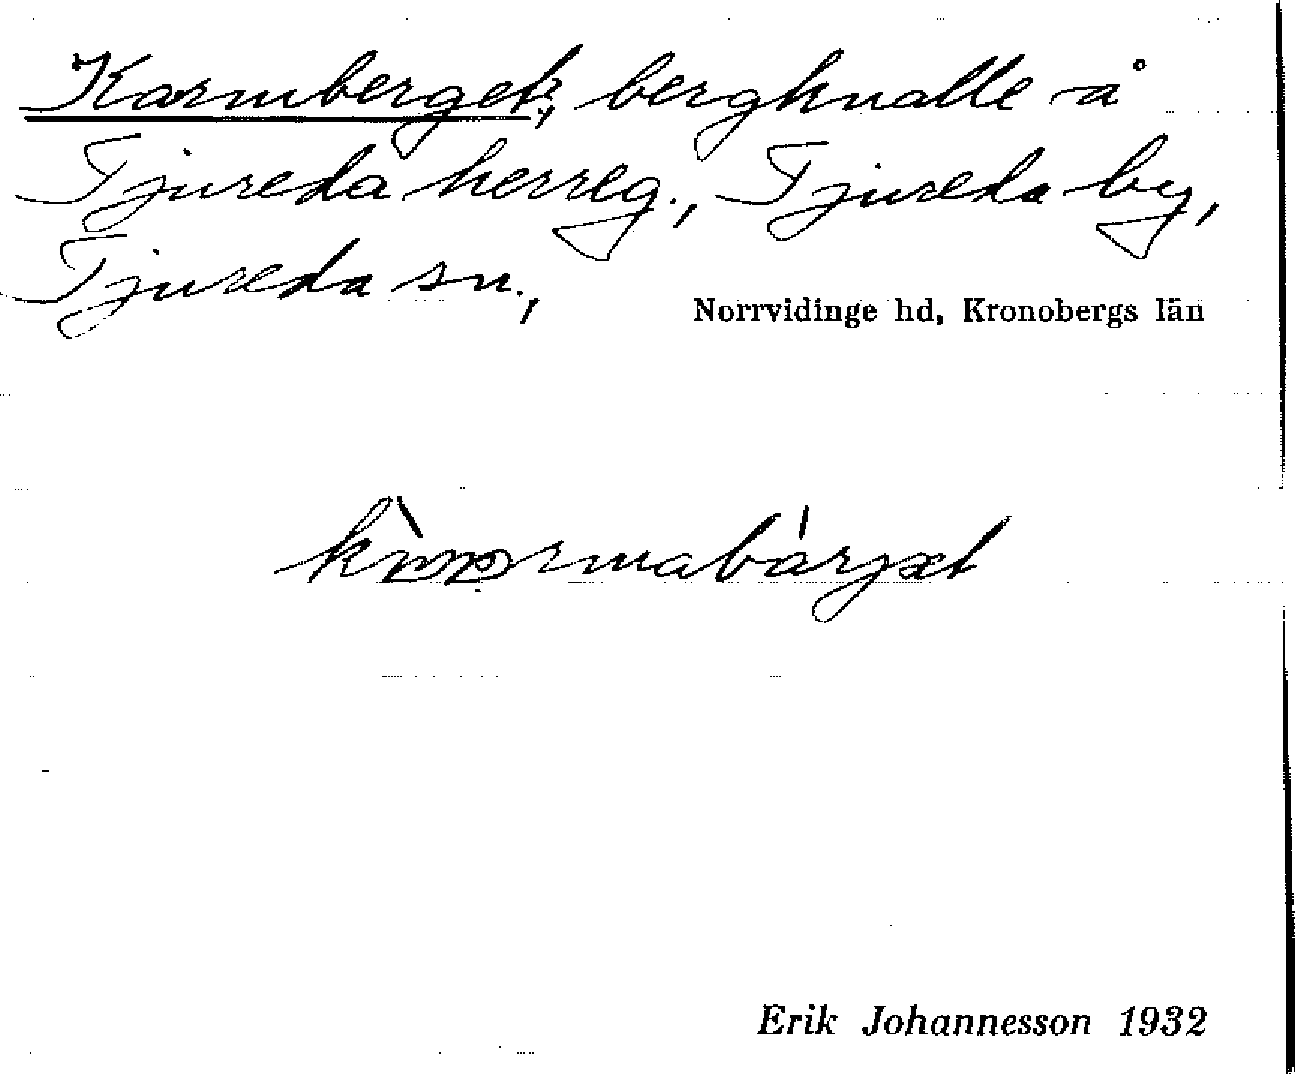 Karmberget, bergknalle å
Tjureda herrg., Tjureda by,
Tjureda sn.,
Norrvidinge hd, Kronobergs län
Erik Johannesson 1932